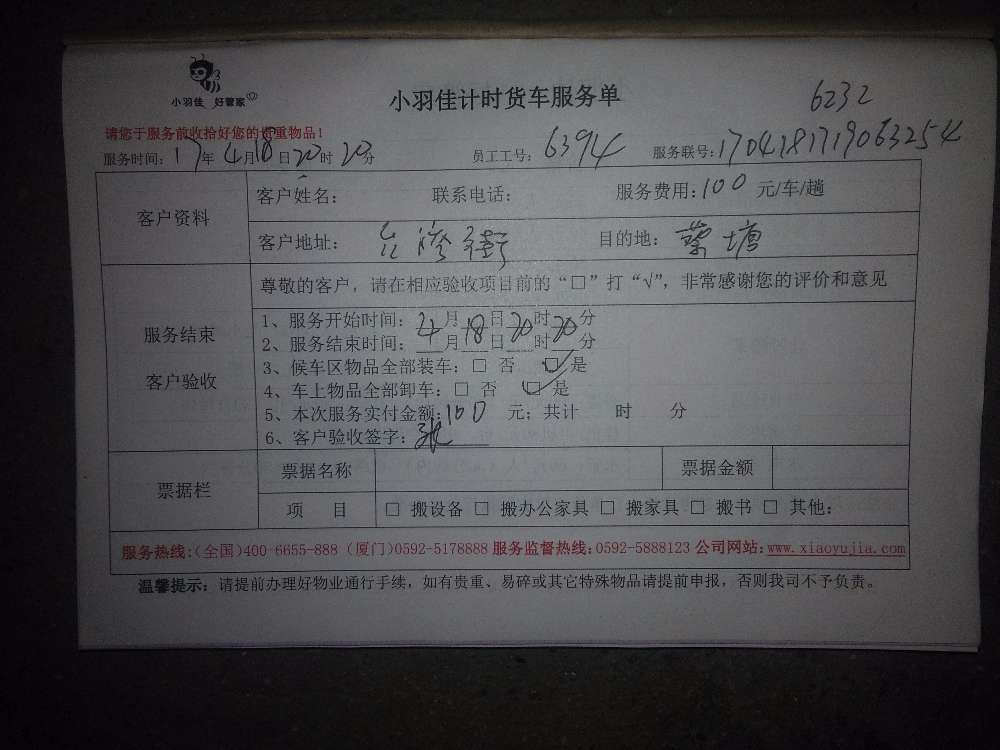 小羽佳 好管家
小羽佳计时货车服务单
6232
请您于服务前收拾好您的贵重物品!
服务时间: 17年4月18日20时20分 员工工号: 6394 服务联号: 1704181719063254
客户资料
客户姓名: 联系电话: 服务费用: 100 元/车/趟
客户地址: 台湾街 目的地: 蔡塘
服务结束
客户验收
尊敬的客户,请在相应验收项目前的“□”打“√”,非常感谢您的评价和意见
1、服务开始时间: 4月18日20时20分
2、服务结束时间: 月 日 时 分
3、候车区物品全部装车: □ 否 □ 是
4、车上物品全部卸车: □ 否 □ 是
5、本次服务实付金额: 100 元; 共计 时 分
6、客户验收签字: 张
票据栏
票据名称 票据金额
项 目 □ 搬设备 □ 搬办公家具 □ 搬家具 □ 搬书 □ 其他:
服务热线:(全国)400-6655-888 (厦门)0592-5178888 服务监督热线:0592-5888123 公司网站:www.xiaoyujia.com
温馨提示: 请提前办理好物业通行手续,如有贵重、易碎或其它特殊物品请提前申报,否则我司不予负责。